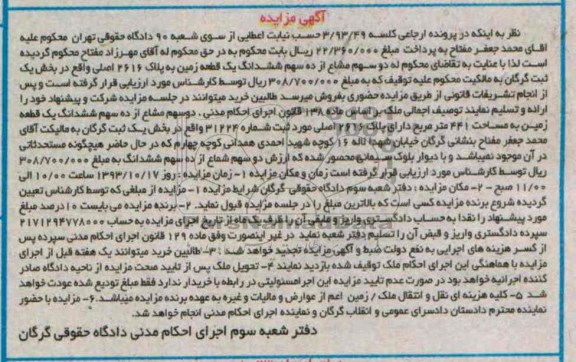 آگهی مزایده
نظر به اینکه در پرونده ارجاعی کلاسه ۳/۹۳/۴۹ حسب نیابت اعطایی از سوی شعبه ۹۰ دادگاه حقوقی تهران محکوم علیه
آقای محمد جعفر مفتاح به پرداخت مبلغ ۲۲/۳۶۰/۰۰۰ ریال بابت محکوم به در حق محکوم له آقای مهرزاد مفتاح محکوم گردیده
است لذا با عنایت به تقاضای محکوم له دو سهم مشاع از ده سهم ششدانگ یک قطعه زمین به پلاک ۲۶۱۶ اصلی واقع در بخش یک
ثبت گرگان به مالکیت محکوم علیه توقیف که به مبلغ ۳۰۸/۷۰۰/۰۰۰ ریال توسط کارشناس مورد ارزیابی قرار گرفته است و پس
از انجام تشریفات قانونی از طریق مزایده حضوری بفروش میرسد طالبین خرید میتوانند در جلسه مزایده شرکت و پیشنهاد خود را
ارائه و تسلیم نمایند توصیف اجمالی ملک بر اساس ماده ۱۳۸ قانون اجرای احکام مدنی . دوسهم مشاع از ده سهم ششدانگ یک قطعه
زمین به مساحت ۴۴۱ متر مربع دارای پلاک ۲۶۱۶ اصلی مورد ثبت شماره ۳۱۲۲۴ واقع در بخش یک ثبت گرگان به مالکیت آقای
محمد جعفر مفتاح بنشانی گرگان خیابان شهدا لاله ۱۶ کوچه شهید احمدی همدانی کوچه چهارم که در حال حاضر هیچگونه مستحدثاتی
در آن موجود نمیباشد و با دیوار بلوک سیمانی محصور شده که ارزش دو سهم شماع از ده سهم ششدانگ به مبلغ ۳۰۸/۷۰۰/۰۰۰
ریال توسط کارشناس مورد ارزیابی قرار گرفته است زمان و مکان مزایده ۱- زمان مزایده : روز ۱۳۹۳/۱۰/۱۷ ساعت ۱۰/۰۰ الی
۱۱/۰۰ صبح ۲- مکان مزایده : دفتر شعبه سوم دادگاه حقوقی گرگان شرایط مزایده ۱- مزایده از مبلغی که توسط کارشناس تعیین
گردیده شروع برنده مزایده کسی است که بالاترین مبلغ را در جلسه مزایده قبول نماید. ۲- برنده مزایده می بایست ۱۰ درصد مبلغ
مورد پیشنهاد را نقدا به حساب دادگستری واریز و مابقی آن را ظرف یک ماه از تاریخ اجرای مزایده به حساب ۲۱۷۱۲۹۴۷۷۸۰۰۰
سپرده دادگستری واریز و قبض آن را تسلیم دفتر شعبه نماید در غیر اینصورت وفق ماده ۱۲۹ قانون اجرای احکام مدنی سپرده پس
از کسر هزینه های اجرایی به نفع دولت ضبط و آگهی مزایده تجدید خواهد شد . ۳- طالبین خرید میتوانند یک هفته قبل از اجرای
مزایده با هماهنگی این اجرای احکام ملک توقیف شده بازدید نمایند ۴- تحویل ملک پس از تایید صحت مزایده از ناحیه دادگاه صادر
کننده اجرائیه خواهد بود در صورت عدم تایید مزایده این اجرامسئولیتی در رابطه با خریدار ندارد فقط مبلغ تودیع شده عودت خواهد
شد ۵- کلیه هزینه ای نقل و انتقال ملک / زمین اعم از عوارض و مالیات و غیره به عهده برنده مزایده میباشد. ۶- مزایده با حضور
نماینده محترم دادستان دادسرای عمومی و انقلاب گرگان و نماینده اجرای احکام مدنی انجام خواهد شد.
دفتر شعبه سوم اجرای احکام مدنی دادگاه حقوقی گرگان